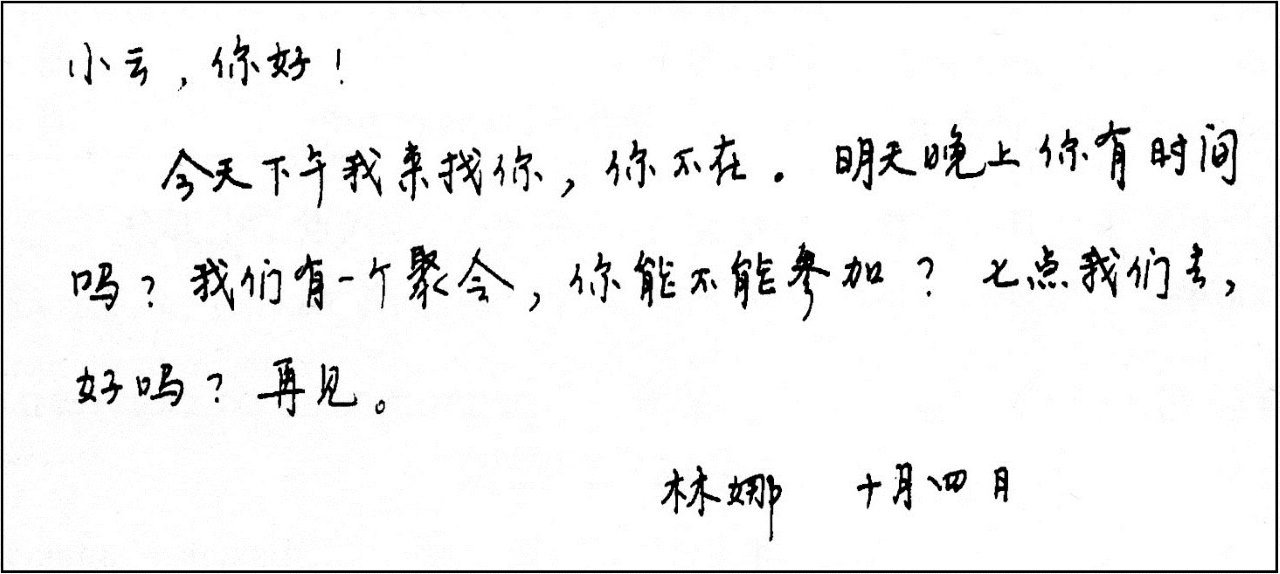 小云，你好！
今天下午我来找你，你不在。明天晚上你有时间
吗？我们有一个聚会，你能不能参加？七点我们去，
好吗？再见。
林娜 十月四日